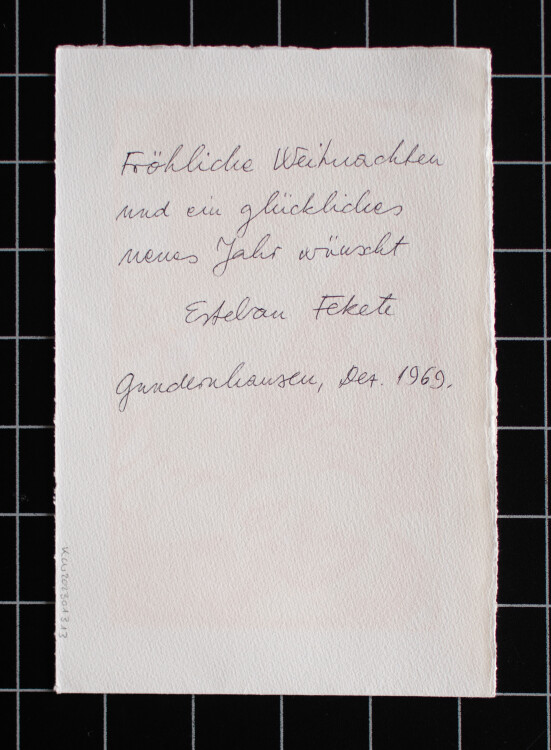 Fröhliche Weihnachten
und ein glückliches
neues Jahr wünscht
Esteban Fekete
Gundernhausen, Dez. 1969.